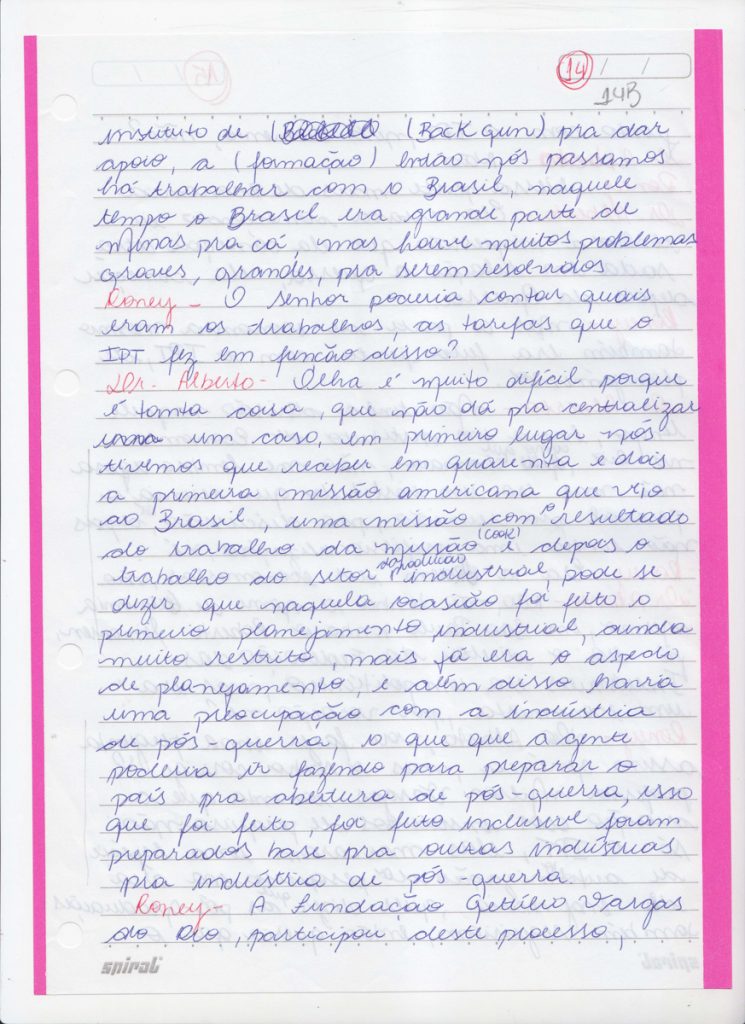 14 / /
14B
instituto de (Back Gun) pra dar
apoio, a (formação) então nós passamos
há trabalhar com o Brasil, naquele
tempo o Brasil era grande parte de
Minas pra cá, mas houve muitos problemas
graves, grandes, pra serem resolvidos
Roney - O senhor poderia contar quais
eram os trabalhos, as tarefas que o
IPT fez em função disso?
Dr. Alberto - Olha é muito difícil porque
é tanta coisa, que não dá pra centralizar
um caso, em primeiro lugar nós
tivemos que receber em quarenta e dois
a primeira missão americana que veio
ao Brasil, uma missão com o resultado
do trabalho da missão (Cook) e depois o
trabalho do setor da produção industrial, pode se
dizer que naquela ocasião foi feito o
primeiro planejamento industrial, ainda
muito restrito, mais já era o aspecto
de planejamento, e além disso havia
uma preocupação com a indústria
de pós-guerra, o que que a gente
poderia ir fazendo para preparar o
país pra abertura de pós-guerra, isso
que foi feito, foi feito inclusive foram
preparados base pra outras indústrias
pra indústria de pós-guerra.
Roney - A Fundação Getúlio Vargas
do Rio, participou deste processo,
spiral